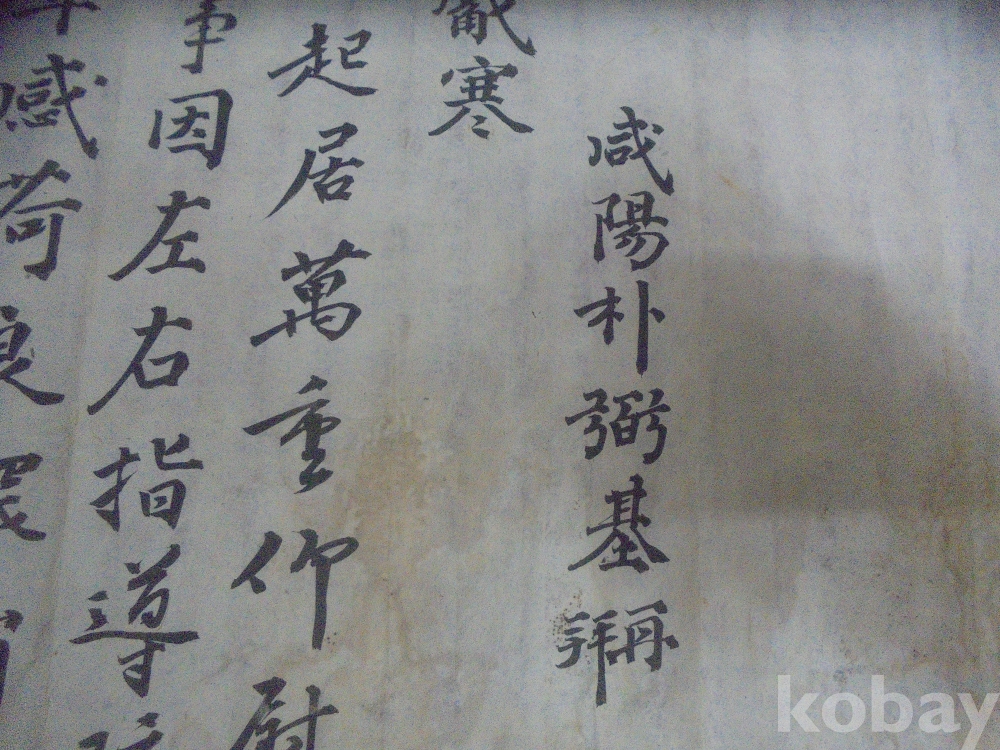 咸陽朴弼基再拜
寒
起居萬重仰慰
事因左右指導
感荷良
kobay